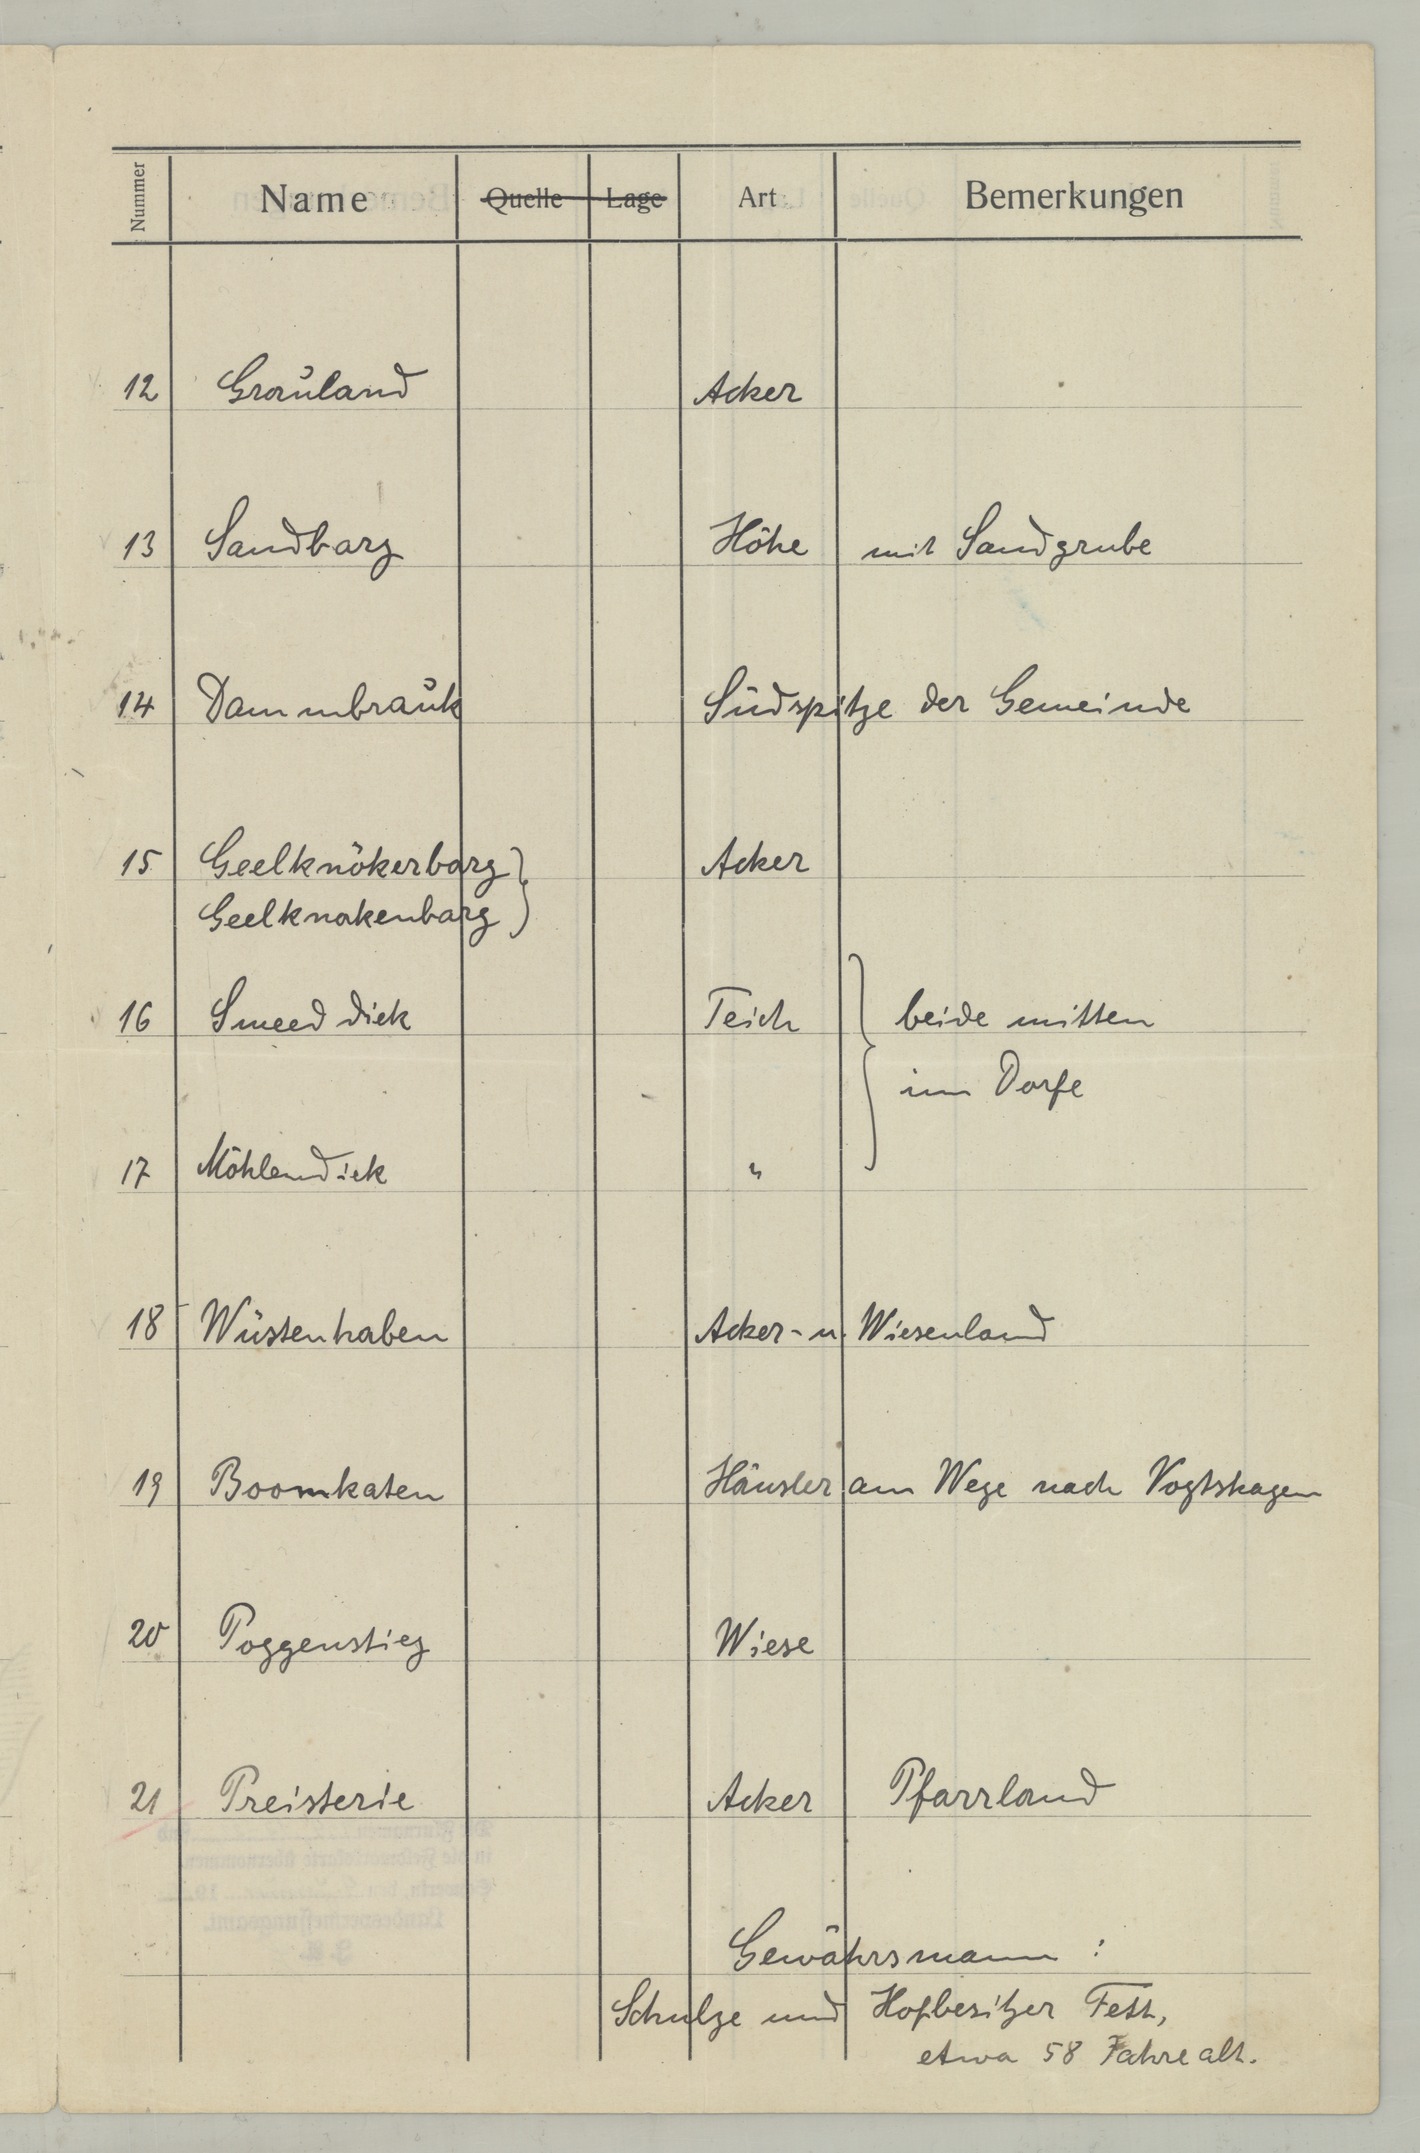 Nummer Name Quelle Lage Art Bemerkungen
12 Grauland Acker
13 Sandbarg Höhe mit Sandgrube
14 Dammbrauk Südspitze der Gemeinde
15 Geelknökerbarg Acker
Geelknakenbarg
16 Smeeddiek Teich beide mitten
im Dorfe
17 Möhlendiek "
18 Wüstenhaben Acker- u. Wiesenland
19 Boomkaten Häusler am Wege nach Vogtshagen
20 Poggenstieg Wiese
21 Preisterie Acker Pfarrland
Gewährsmann :
Schulze und Hofbesitzer Fett,
etwa 58 Jahre alt.